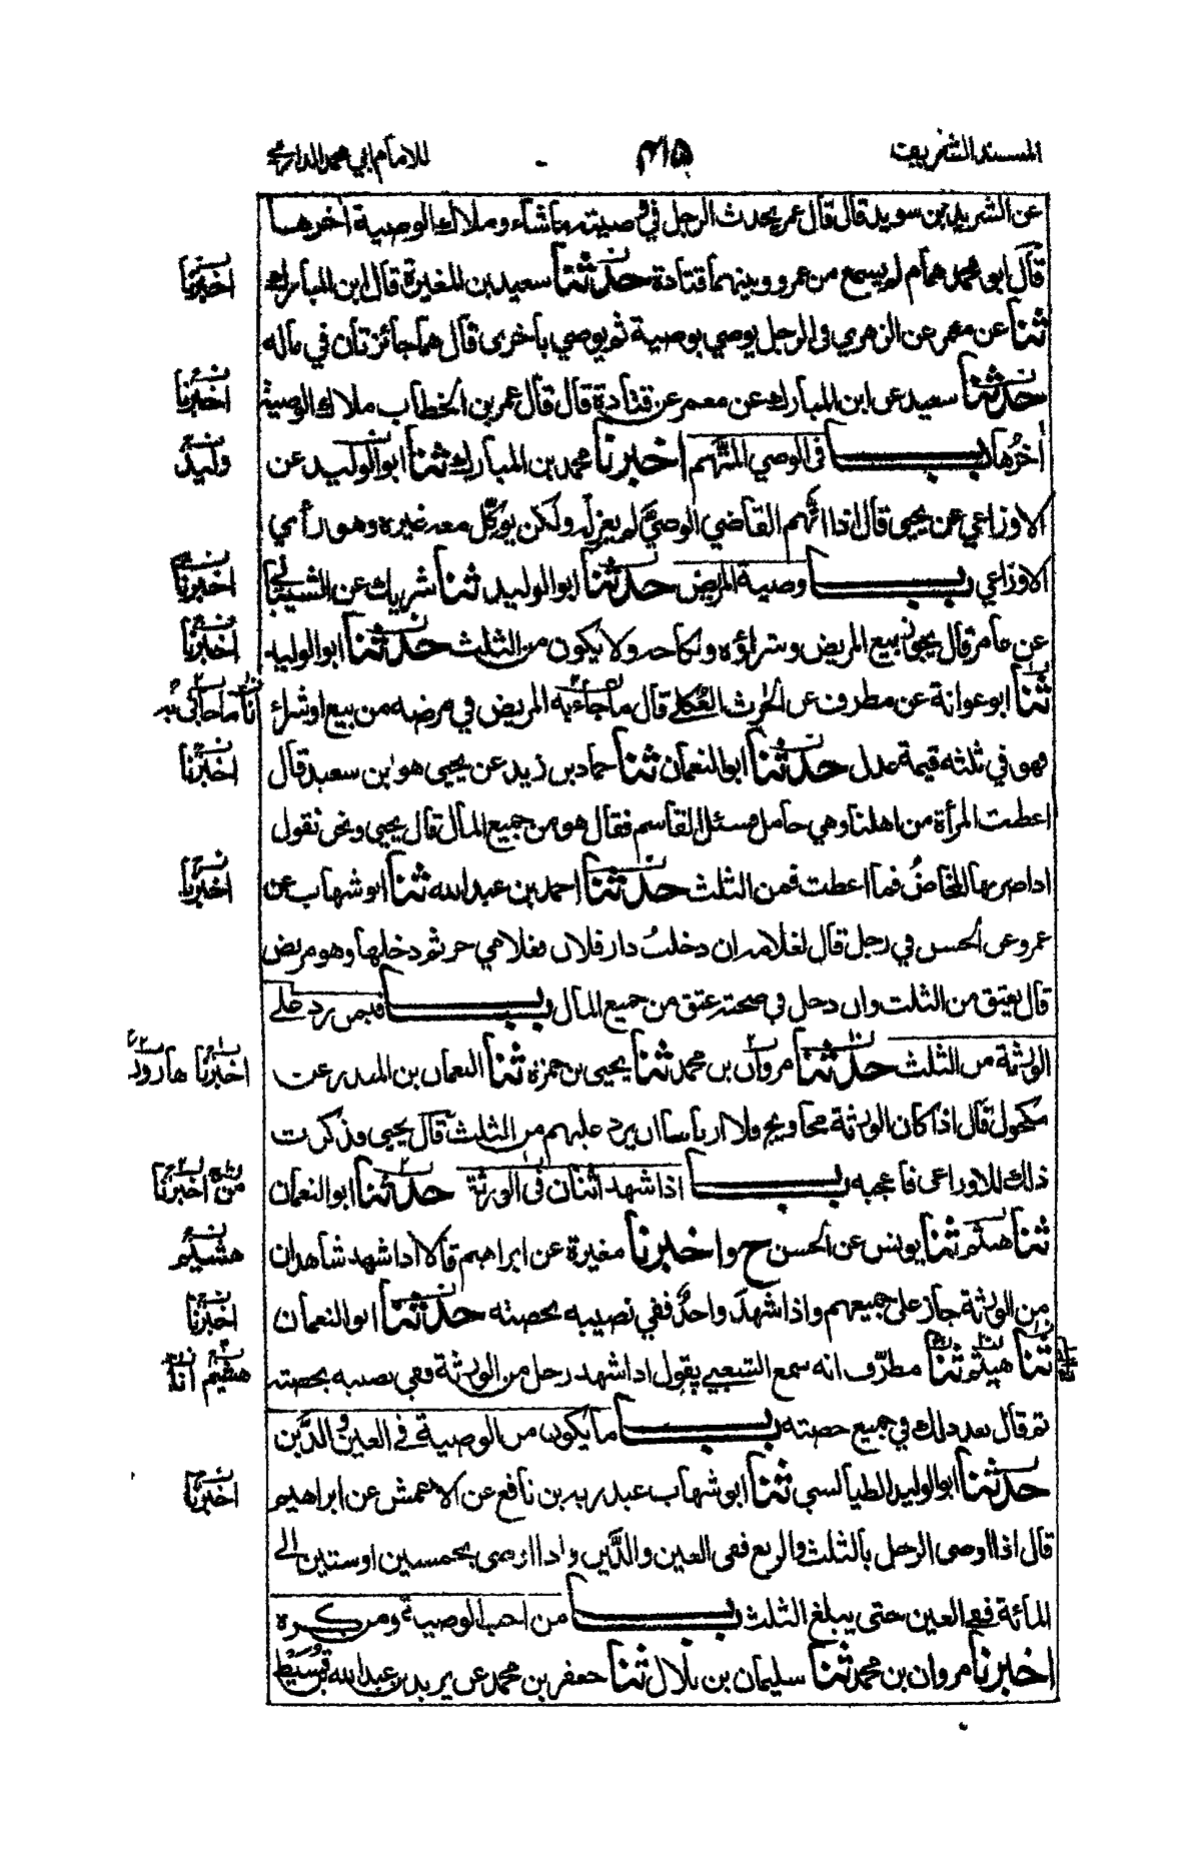 المسند الشريف ٤١٥ للامام ابي محمد الدارمي
عن الشريد بن سويد قال قال عمر يحدث الرجل في وصيته ما شاء وملاك الوصية اخرها
قال ابو محمد همام لم يسمع من عمرو وبينهما قتادة حدثنا سعيد بن المغيرة قال ابن المبارك اخبرنا
ثنا عن معمر عن الزهري في الرجل يوصي بوصية ثم يوصي باخرى قال هما جائزتان في ماله
حدثنا سعيد عن ابن المبارك عن معمر عن قتادة قال قال عمر بن الخطاب ملاك الوصية اخبرنا
أخرُها باب فى الوصي المتهم اخبرنا محمد بن المبارك ثنا ابو الوليد عن وليد
الاوزاعي عن يحيى قال اذا اتهم القاضي الوصيَّ لم يعزله ولكن يوكّل معه غيره وهو رأي
الاوزاعي باب وصية المريض حدثنا ابو الوليد ثنا شريك عن الشيباني اخبرنا
عن عامر قال يجوز بيع المريض وشراؤه ونكاحه ولا يكون من الثلث حدثنا ابو الوليد اخبرنا
ثنا ابو عوانة عن مطرف عن الحٰرث العُكلي قال ما جاء به المريض في مرضه من بيع او شراء انا ما حابى به
فهو في ثلثه قيمة عدل حدثنا ابو النعمان ثنا حماد بن زيد عن يحيى هو ابن سعيد قال اخبرنا
اعطت المرأة من اهلنا وهي حامل فسئل القاسم فقال هو من جميع المال قال يحيى ونحن نقول
اذا ضربها المخاضُ فما اعطت فمن الثلث حدثنا احمد بن عبد الله ثنا ابو شهاب عن اخبرنا
عمرو عن الحسن في رجل قال لغلامه ان دخلتُ دار فلان فغلامي حر ثم دخلها وهو مريض
قال يعتق من الثلث وان دخل في صحته عتق من جميع المال باب فيمن رد على
الورثة من الثلث حدثنا مروان بن محمد ثنا يحيى بن حمزة ثنا النعمان بن المنذر عن اخبرنا هارون
مكحول قال اذا كان الورثة محاويج فلا ارى باسا ان يرد عليهم من الثلث قال يحيى فذكرت
ذلك للاوزاعي فاعجبه باب اذا شهد اثنان في الورثة حدثنا ابو النعمان من اخبرنا
ثنا هشيم ثنا يونس عن الحسن ح واخبرنا مغيرة عن ابراهيم قالا اذا شهد شاهدان هشيم
من الورثة جاز على جميعهم واذا شهد واحدٌ ففي نصيبه بحصته حدثنا ابو النعمان اخبرنا
ثنا هيثم ثنا مطرّف انه سمع الشعبي يقول اذا شهد رجل من الورثة ففي نصيبه بحصته هشيم انا
ثم قال بعد ذلك في جميع حصته باب ما يكون من الوصية في العين والدَّين
حدثنا ابو الوليد الطيالسي ثنا ابو شهاب عبد ربه بن نافع عن الاعمش عن ابراهيم اخبرنا
قال اذا اوصى الرجل بالثلث والربع ففي العين والدَّين واذا اوصى بخمسين او ستين الى
المائة ففي العين حتى يبلغ الثلث باب من احب الوصية ومن كره
اخبرنا مروان بن محمد ثنا سليمان بن بلال ثنا جعفر بن محمد عن يزيد بن عبد الله بن قُسَيط